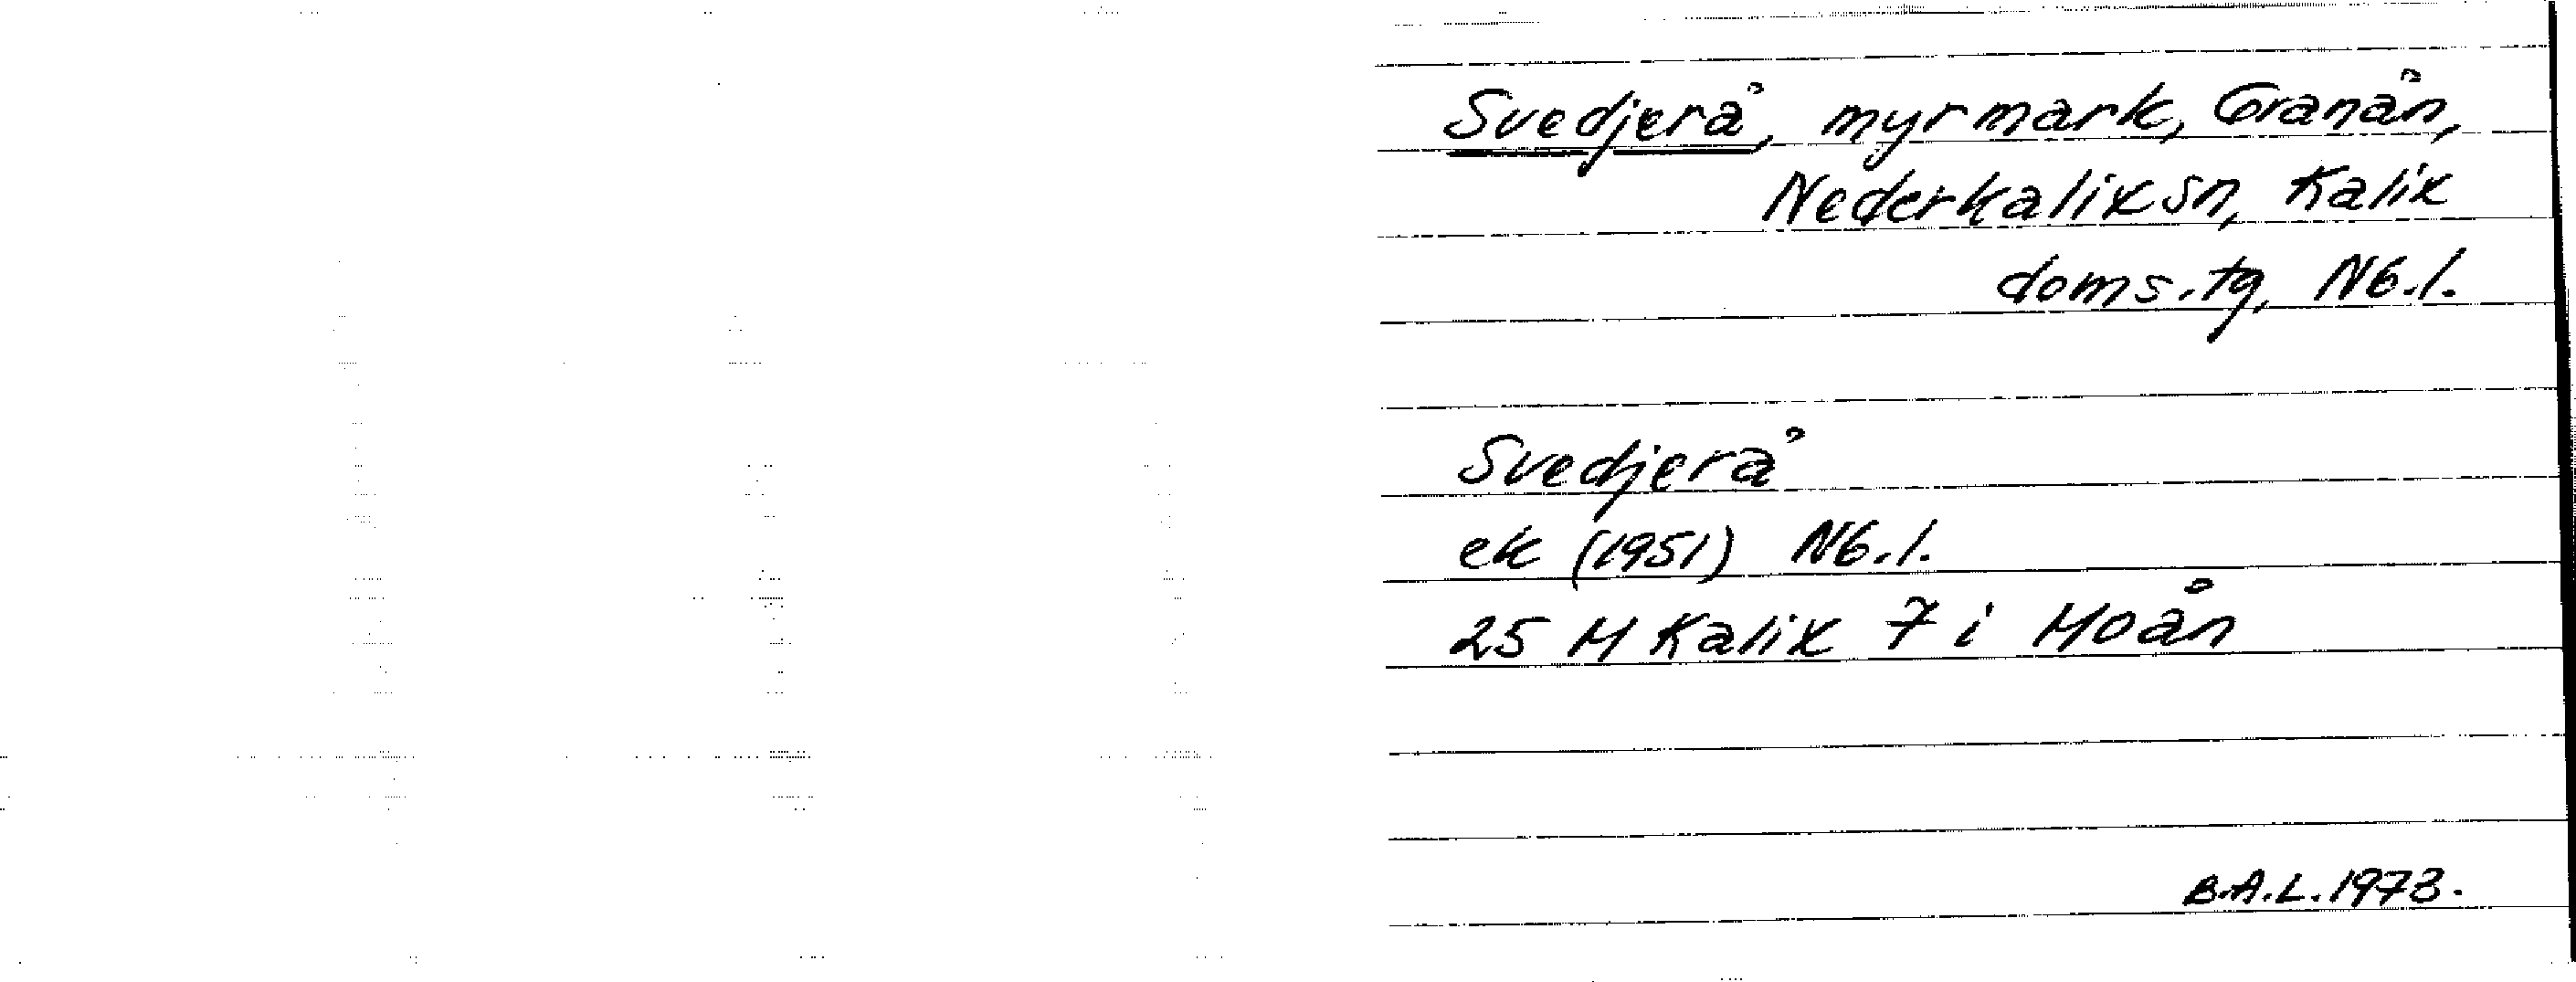 Svedjerå, myrmark, Granån,
Nederkalix sn, Kalix
doms.tg, Nb.l.
Svedjerå
ek (1951) Nb.l.
25 M Kalix 7 i Moån
B.A.L. 1973.